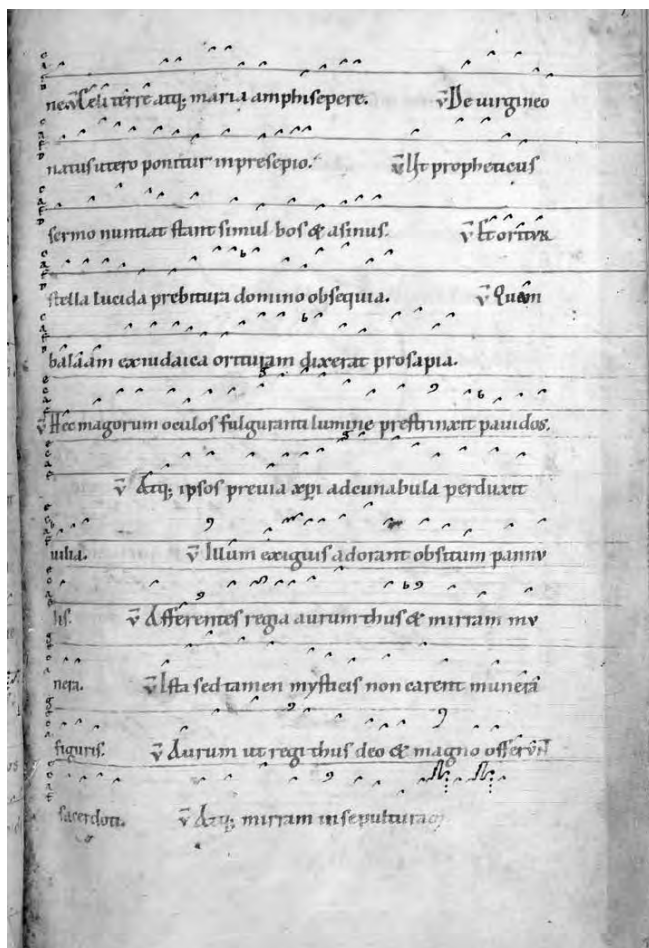 neq; celi terre atq; maria amphisepere. v̄ De uirgineo
natus utero ponitur inpresepio. v̄ Ut propheticus
sermo nuntiat stant simul bos & asinus. v̄ Et oritur
stella lucida prebitura domino obsequia. v̄ Quam
balaam exiudaica orituram dixerat prosapia.
v̄ Hec magorum oculos fulguranti lumine prestrinxit pauidos.
v̄ Atq; ipsos preuia xp̄i adcunabula perduxit
uilia. v̄ Illum exiguis adorant obsitum pannu
lis. v̄ Afferentes regia aurum thus & mirram mu
nera. v̄ Ista sed tamen mysticis non carent munera
figuris. v̄ Aurum ut regi thus deo & magno offerunt
sacerdoti. v̄ Atq; mirram insepultura